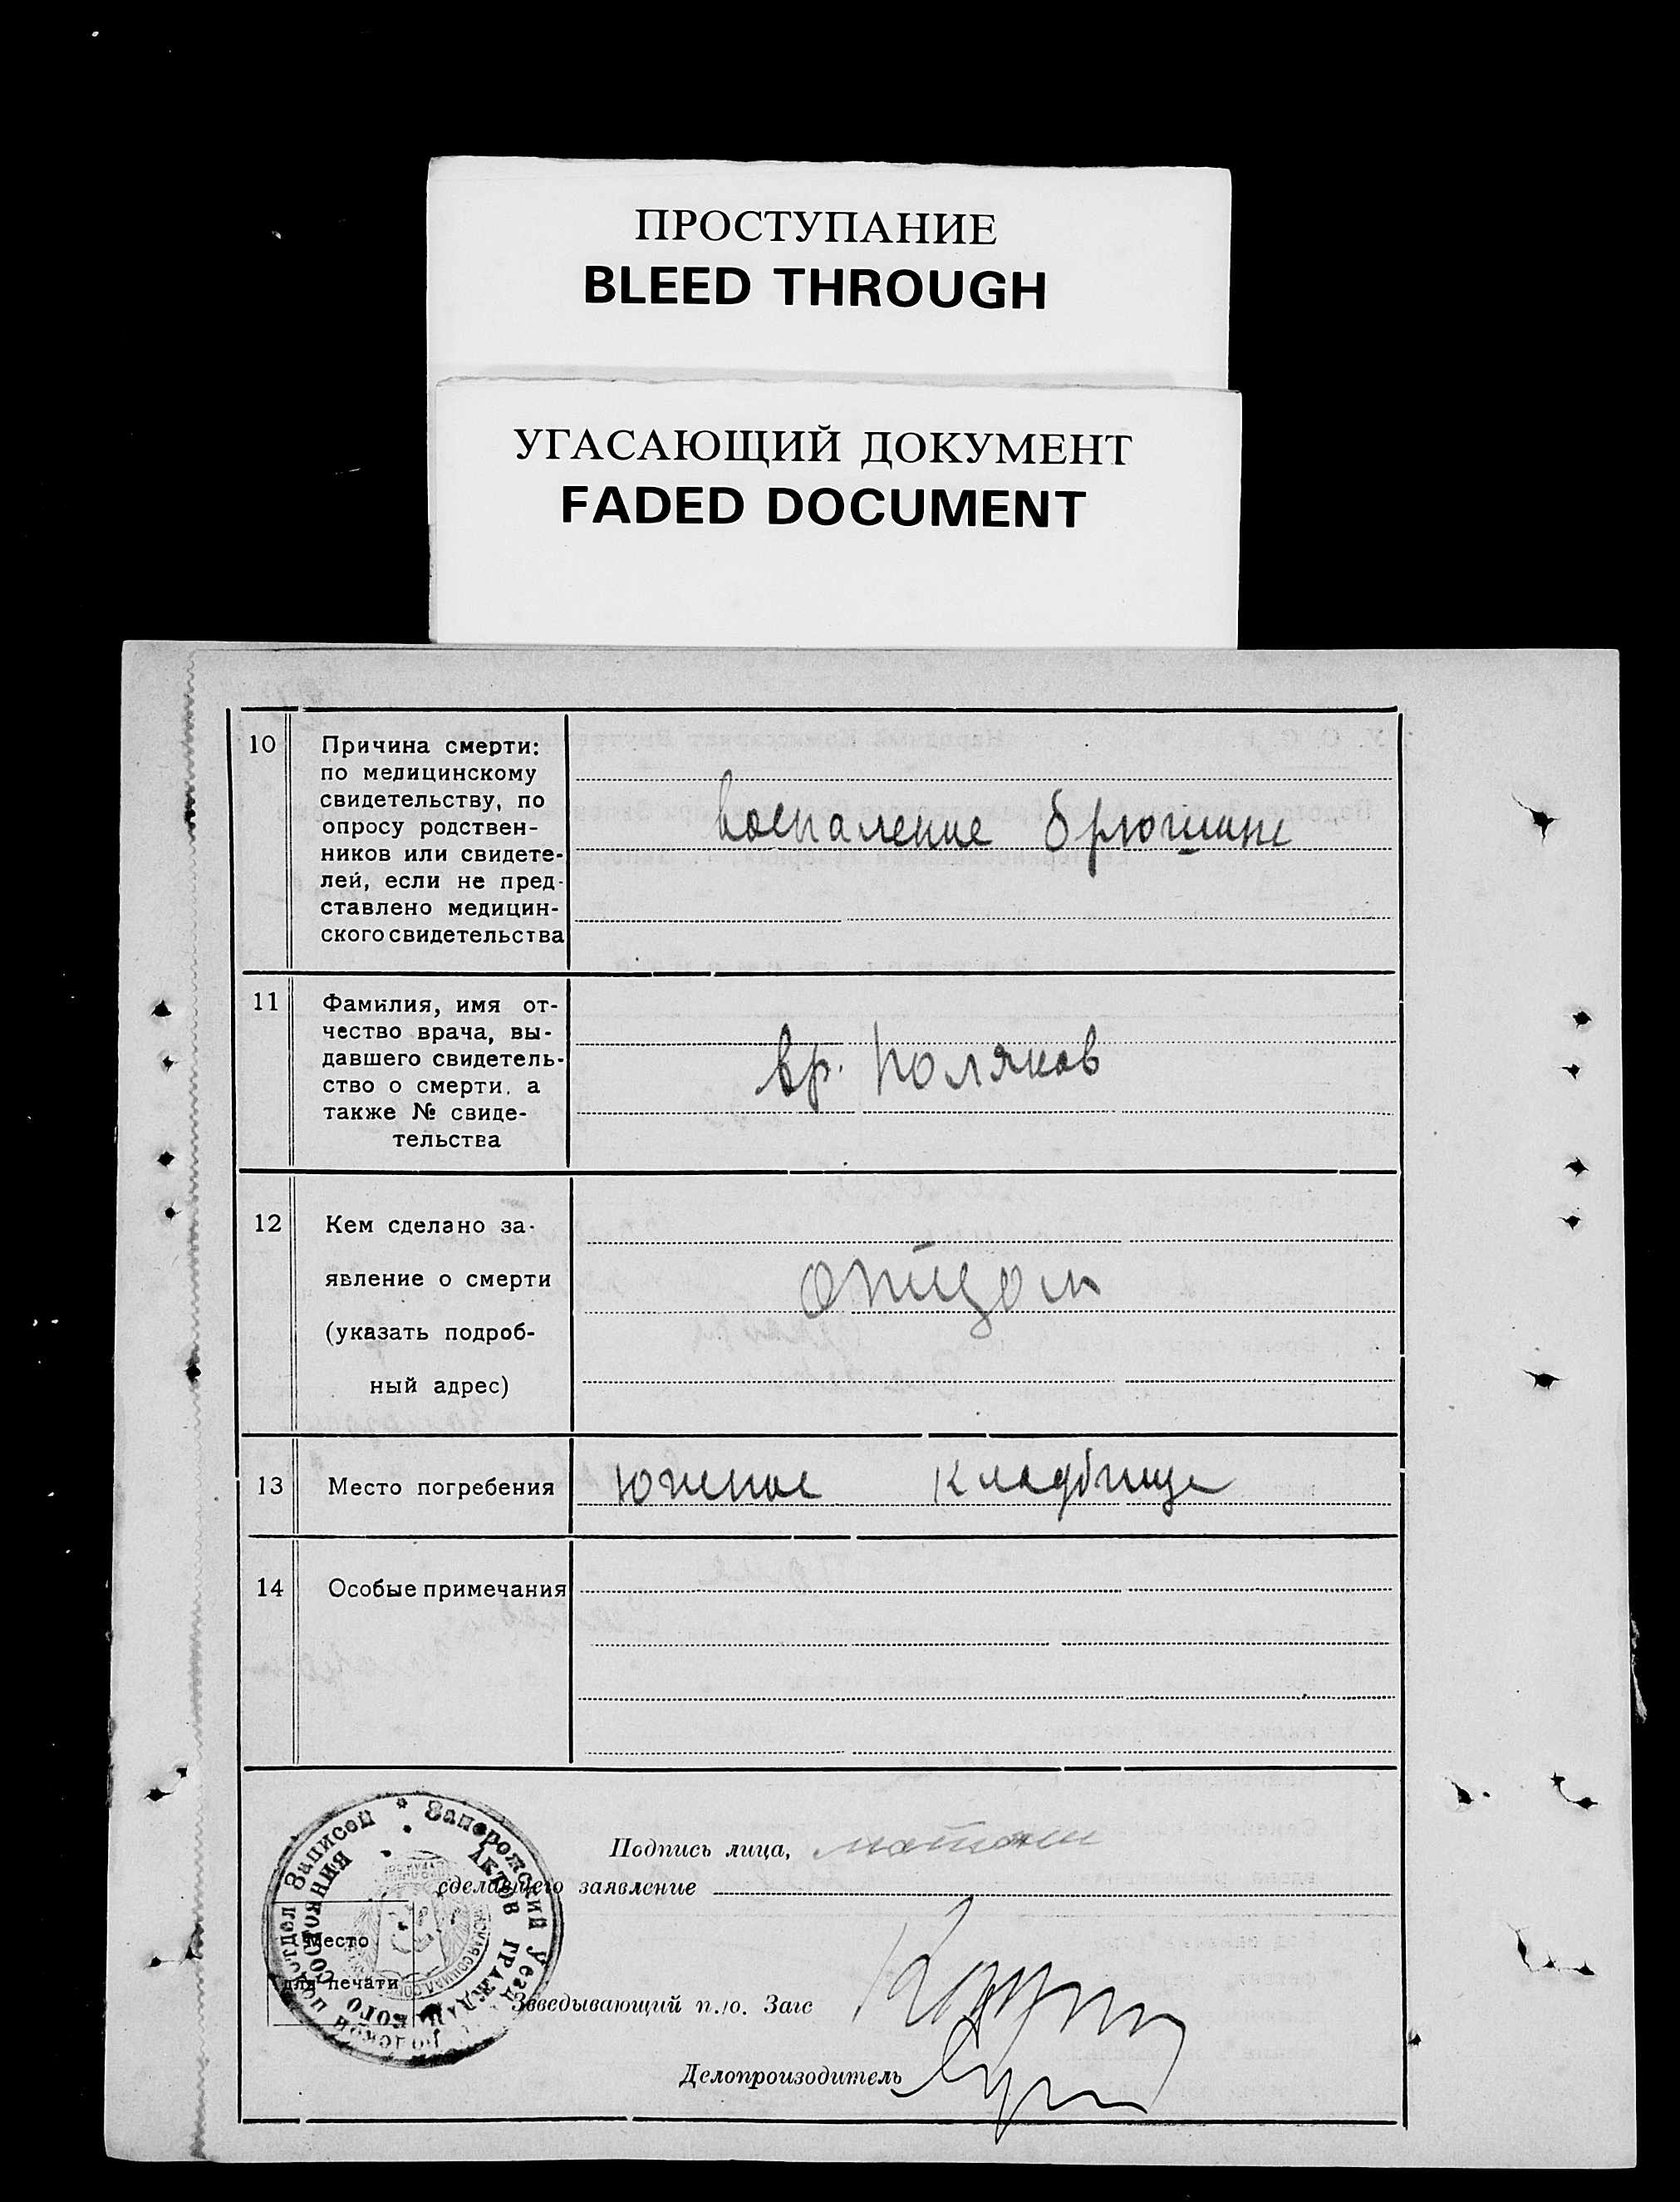 ПРОСТУПАНИЕ
BLEED THROUGH
УГАСАЮЩИЙ ДОКУМЕНТ
FADED DOCUMENT
10
Причина смерти:
по медицинскому
свидетельству, по
опросу родствен-
ников или свидете-
лей, если не пред-
ставлено медицин-
ского свидетельства
воспаление брюшине
11
Фамилия, имя от-
чество врача, вы-
давшего свидетель-
ство о смерти, а
также № свиде-
тельства
вр. Поляков
12
Кем сделано за-
явление о смерти
(указать подроб-
ный адрес)
отцом
13
Место погребения
Южное кладбище
14
Особые примечания
Подпись лица,
сделавшего заявление
Место
для печати
Запорожский Уезд
подотдел Записей
АКТОВ ГРАЖДАНСКОГО СОСТОЯНИЯ
Заведывающий п./о. Загс
Делопроизводитель